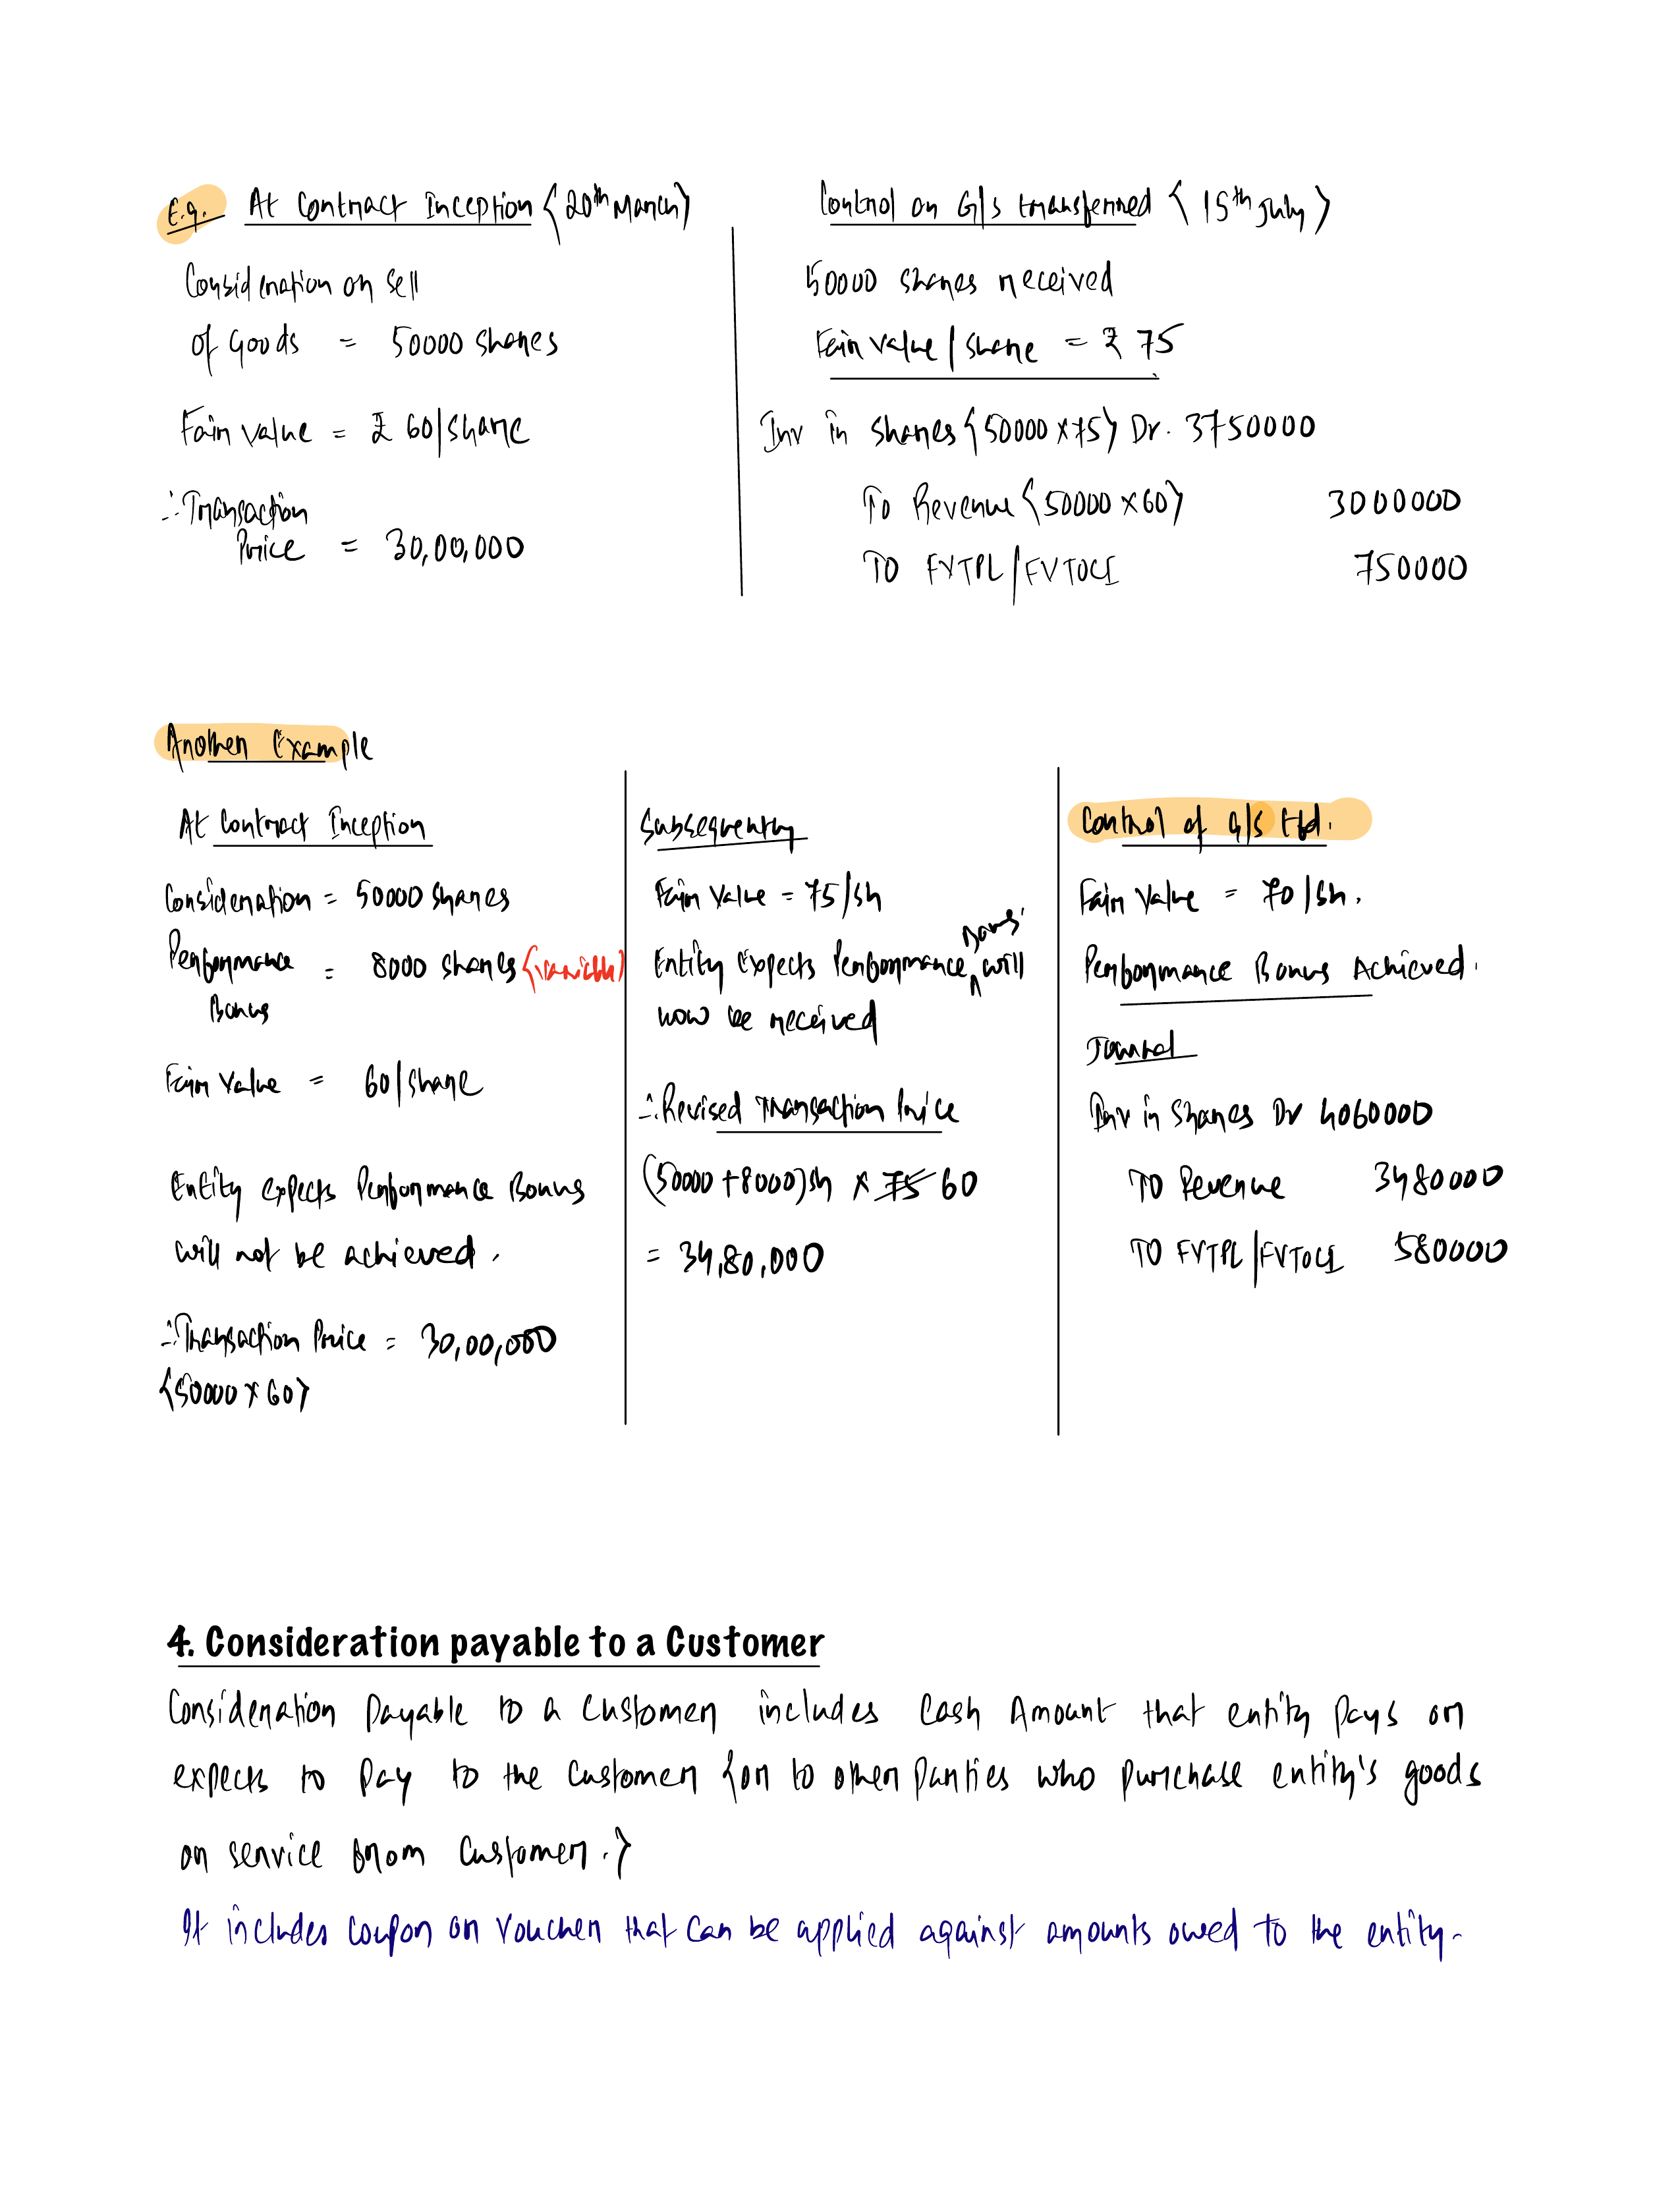 E.g. At Contract Inception {20th March}
Consideration on sell
of Goods = 50000 shares
Fair value = ₹ 60/share
∴ Transaction
Price = 30,00,000
Control on G/s transferred {15th July}
50000 shares received
Fair value/share = ₹ 75
Inv in shares {50000 x 75} Dr. 3750000
To Revenue {50000 x 60} 3000000
TO FVTPL/FVTOCI 750000
Another Example
At Contract Inception
Consideration = 50000 shares
Performance = 8000 shares {variable}
Bonus
Fair value = 60/share
Entity expects Performance Bonus
will not be achieved.
∴ Transaction Price = 30,00,000
{50000 x 60}
Subsequently
Fair Value = 75/sh
Bonus
Entity expects Performance ^ will
now be received
∴ Revised Transaction Price
(50000 + 8000)sh x 75 60
= 34,80,000
Control of G/s tfd.
Fair Value = 70/sh.
Performance Bonus Achieved.
Journal
Inv in Shares Dr 4060000
TO Revenue 3480000
TO FVTPL/FVTOCI 580000
4. Consideration payable to a Customer
Consideration Payable to a Customer includes Cash Amount that entity pays or
expects to pay to the customer {or to other parties who purchase entity's goods
or service from customer.}
It includes coupon or voucher that can be applied against amounts owed to the entity.